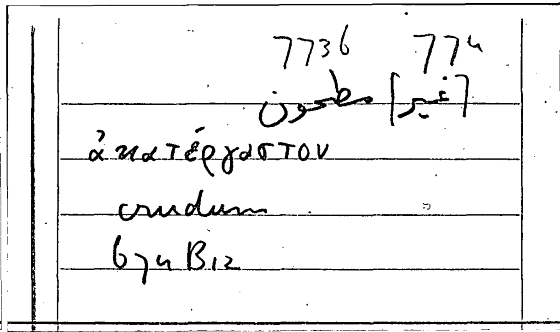 773b 774
[غير] مطحون
ἀκατέργαστον
crudum
674 B12